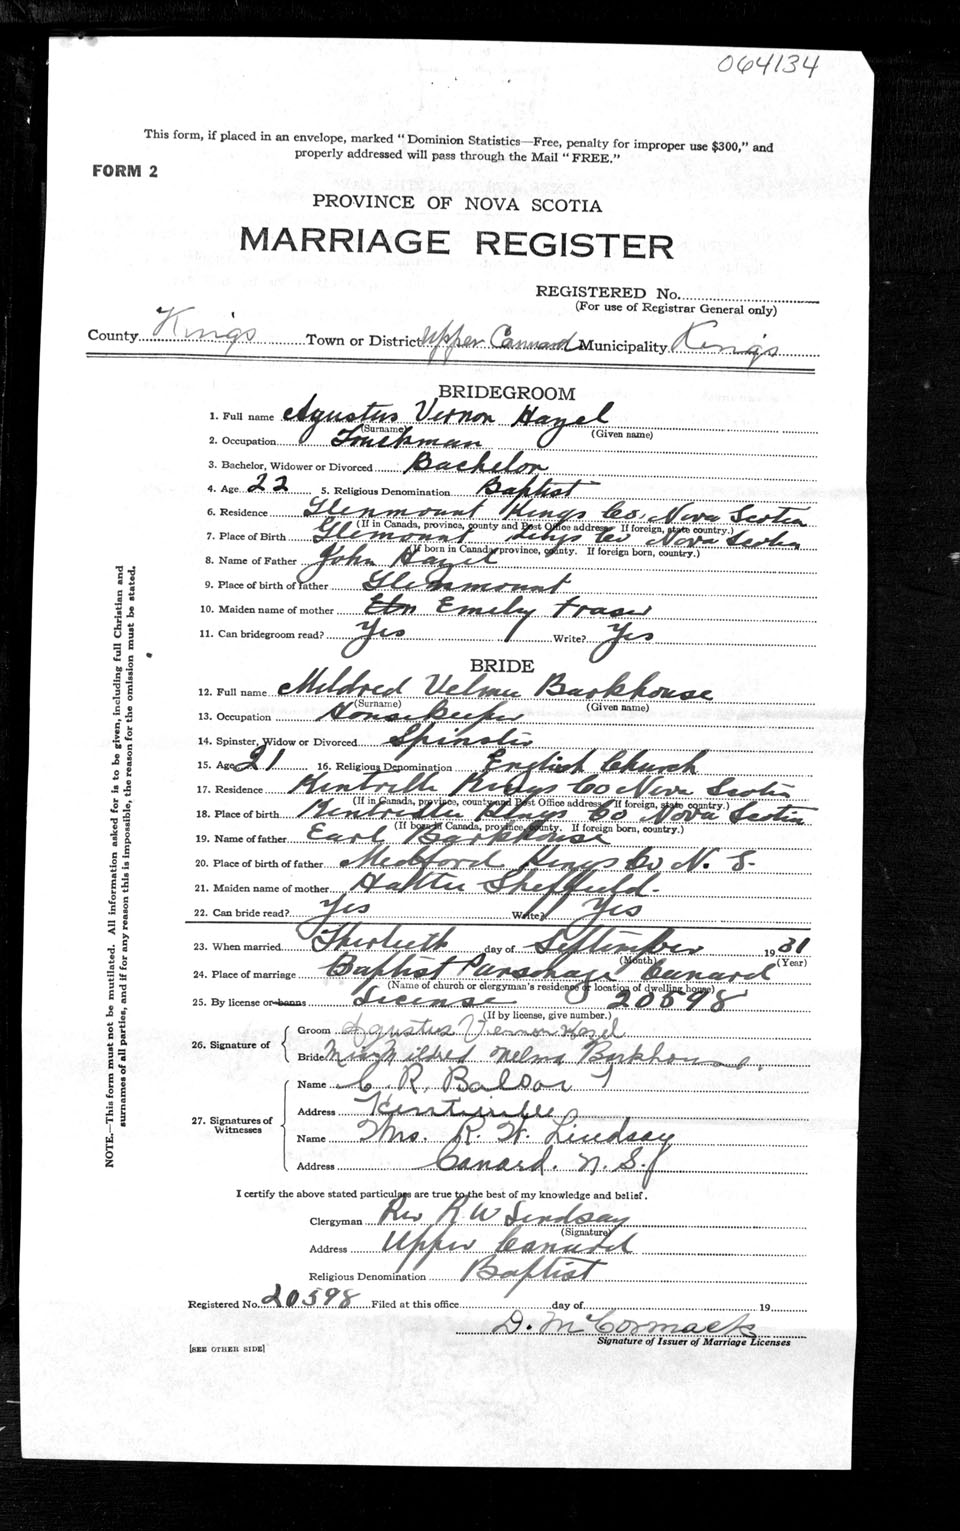 064134
This form, if placed in an envelope, marked "Dominion Statistics—Free, penalty for improper use $300," and
properly addressed will pass through the Mail "FREE."
FORM 2
PROVINCE OF NOVA SCOTIA
MARRIAGE REGISTER
REGISTERED No.
(For use of Registrar General only)
County Kings Town or District Upper Cannard Municipality Kings
BRIDEGROOM
1. Full name Agustus Vernon Hazel
(Surname) (Given name)
2. Occupation Truckman
3. Bachelor, Widower or Divorced Bachelor
4. Age 22 5. Religious Denomination Baptist
6. Residence Glenmount Kings Co. Nova Scotia
(If in Canada, province, county and Post Office address. If foreign, state country.)
7. Place of Birth Glenmount Kings Co Nova Scotia
(If born in Canada, province, county. If foreign born, country.)
8. Name of Father John Hazel
9. Place of birth of father Glenmount
10. Maiden name of mother Emely Fraser
11. Can bridegroom read? Yes Write? Yes
BRIDE
12. Full name Mildred Velma Barkhouse
(Surname) (Given name)
13. Occupation House Keeper
14. Spinster, Widow or Divorced Spinster
15. Age 21 16. Religious Denomination English Church
17. Residence Kentville Kings Co Nova Scotia
(If in Canada, province, county and Post Office address. If foreign, state country.)
18. Place of birth Kentville Kings Co Nova Scotia
(If born in Canada, province, county. If foreign born, country.)
19. Name of father Earl Barkhouse
20. Place of birth of father Medford Kings Co N. S.
21. Maiden name of mother Sheffield.
22. Can bride read? Yes Write? Yes
23. When married Thirtieth day of September 1931
(Month) (Year)
24. Place of marriage Baptist Parsonage Canard
(Name of church or clergyman's residence or location of dwelling house)
25. By license or banns License 20598
(If by license, give number.)
26. Signature of
Groom Agustus Vernon Hazel
Bride Miss Mildred Velma Barkhouse.
27. Signatures of Witnesses
Name C. R. Balsor
Address Kentville
Name Mrs. R. W. Lindsay
Address Canard. N. S.
I certify the above stated particulars are true to the best of my knowledge and belief.
Clergyman Rev R W Lindsay
(Signature)
Address Upper Canard
Religious Denomination Baptist
Registered No. 20598 Filed at this office day of 19
D. McCormack
Signature of Issuer of Marriage Licenses
[SEE OTHER SIDE]
NOTE.—This form must not be mutilated. All information asked for is to be given, including full Christian and
surnames of all parties, and if for any reason this is impossible, the reason for the omission must be stated.